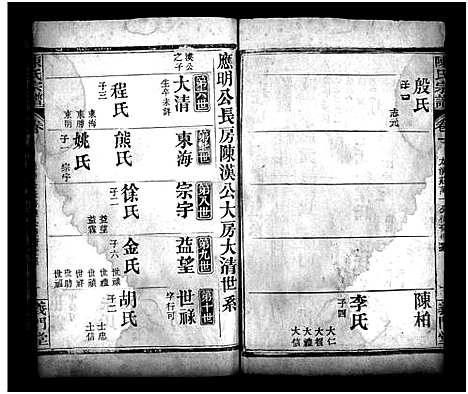 殷氏
子口
志元
陳柏
李氏
子四
大仁
大儒
大信
大志
義門堂
陳氏宗譜
應明公長房陳漢公大房大清世系
第六世
漢公之子
大清
生卒未詳
程氏
子三
東海
東勝
東明
第七世
東海
熊氏
子一
宗宇
姚氏
第八世
宗宇
徐氏
子二
益望
益霖
第九世
益望
金氏
子六
世祿
世禎
世祥
世福
第十世
世祿
字行可
胡氏
子二
士忠
士信
義門堂